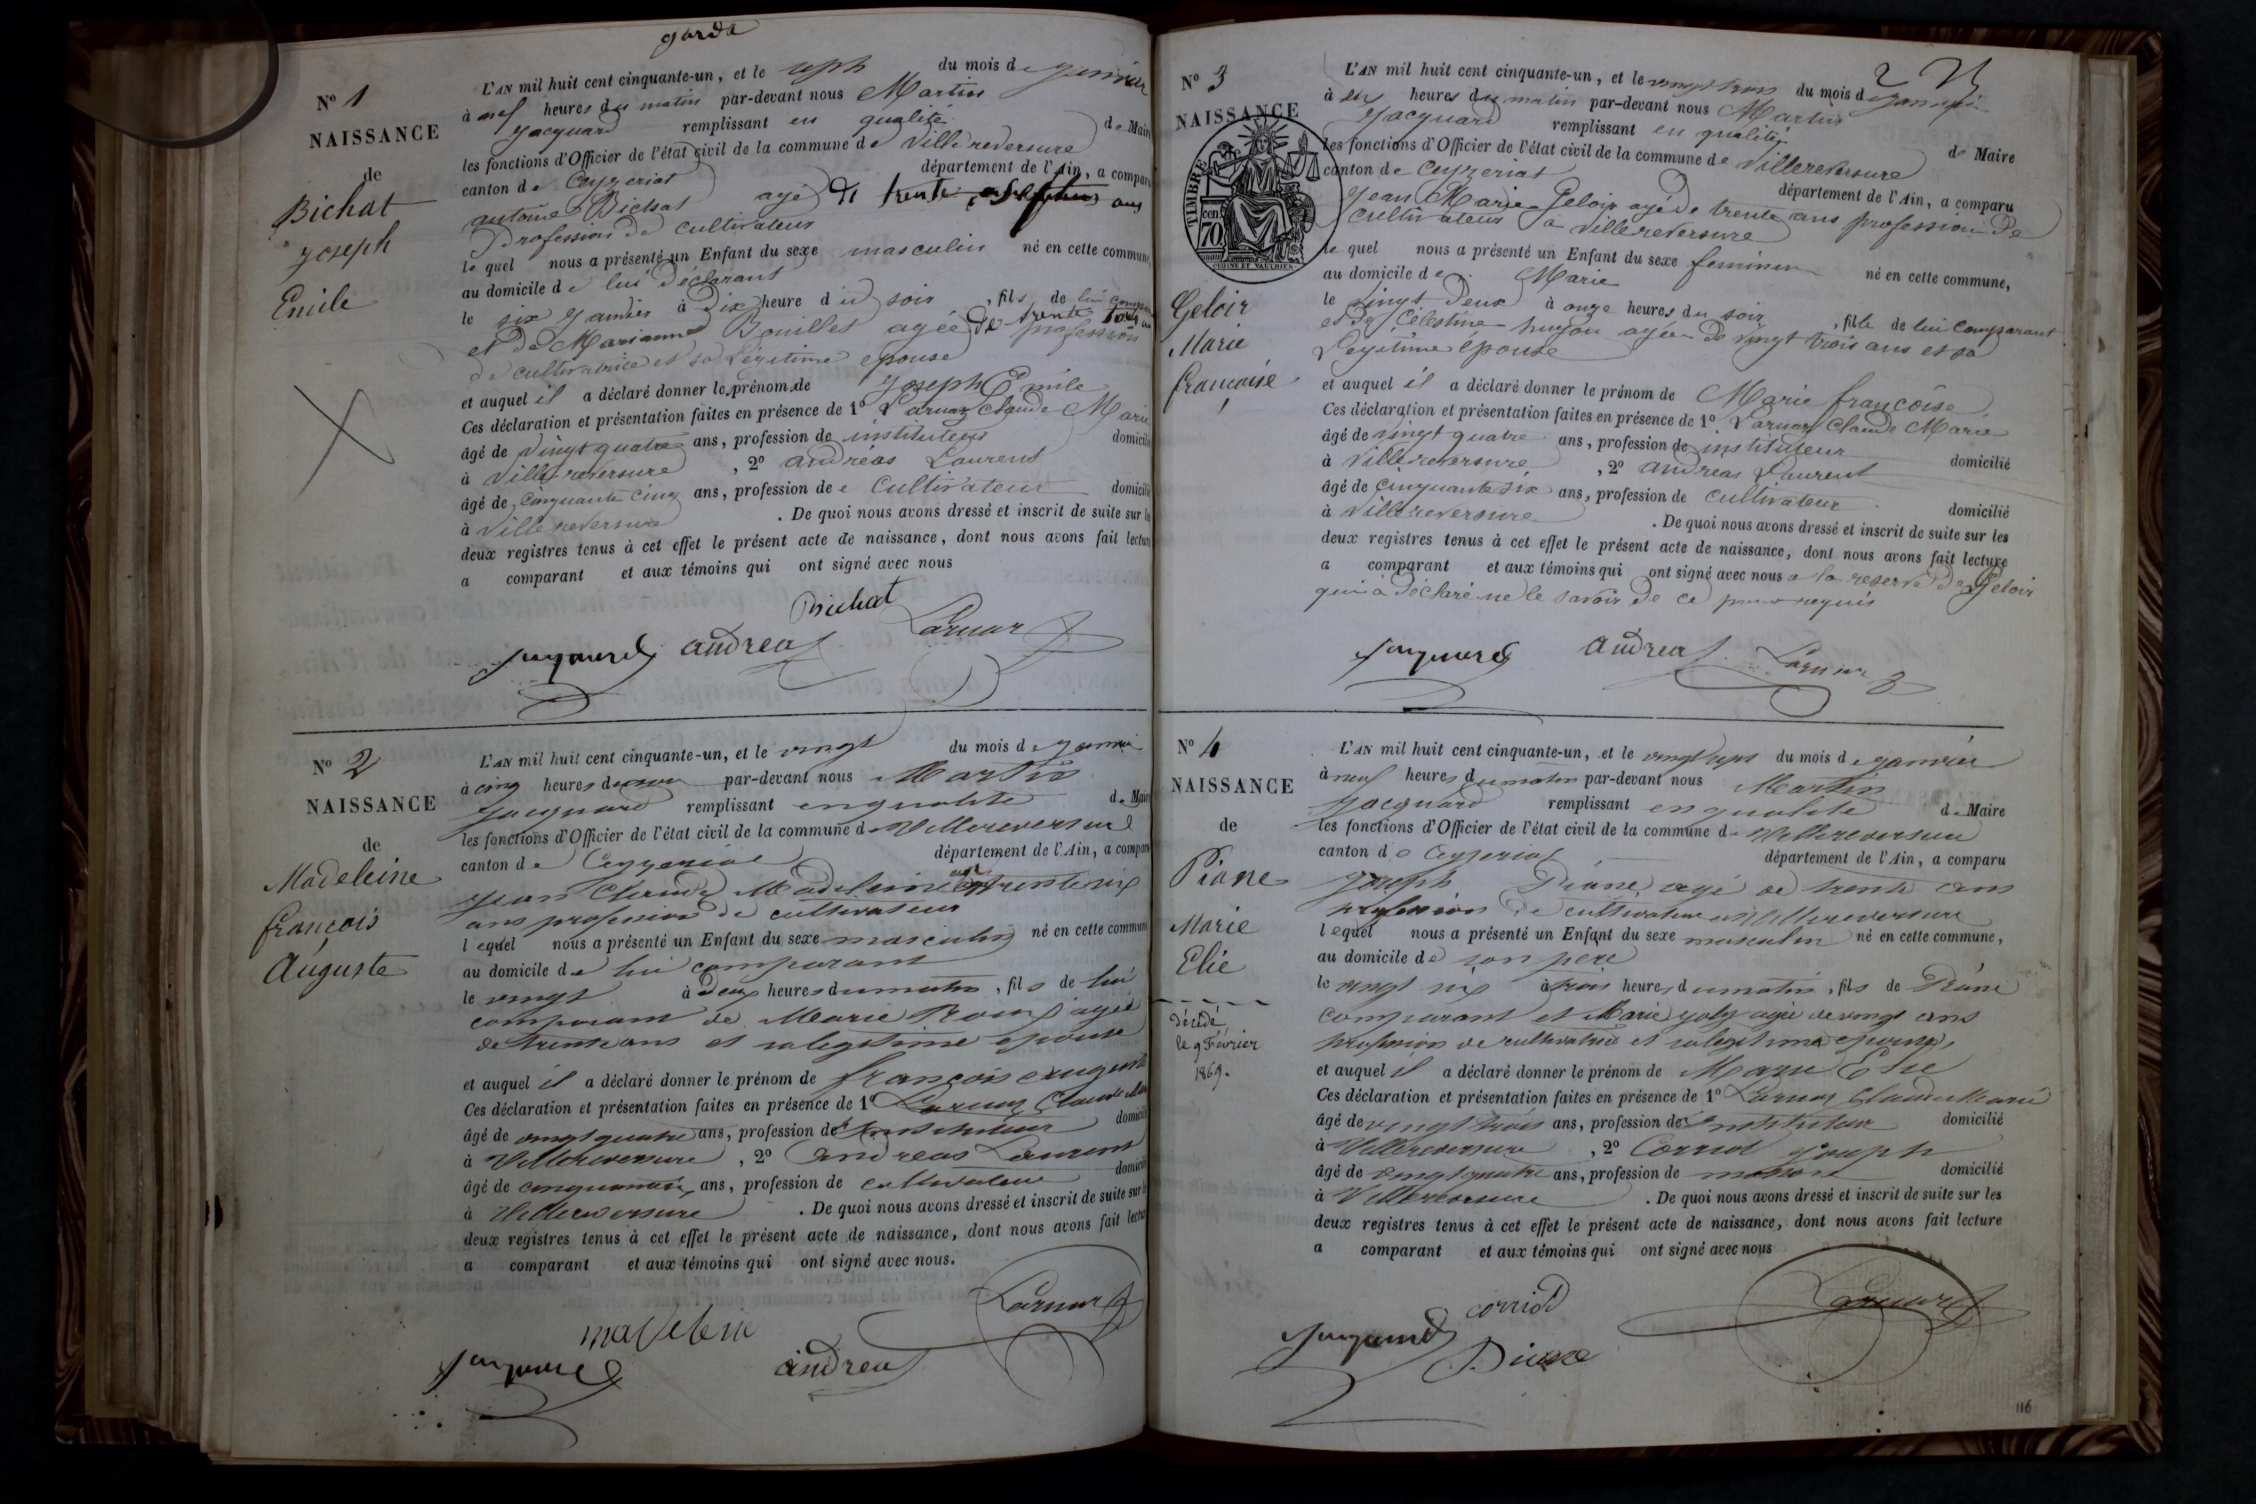 garda
N° 1
NAISSANCE
de
Bichat
Joseph
Emile
L'AN mil huit cent cinquante-un, et le sept du mois de janvier
à neuf heures du matin par-devant nous Martin
Jacquard remplissant en qualité de Maire
les fonctions d'Officier de l'état civil de la commune de Villereversure
canton de Ceyzeriat département de l'Ain, a comparu
antoine Bichat agé de trente ans
profession de cultivateur
le quel nous a présenté un Enfant du sexe masculin né en cette commune,
au domicile de lui déclarant
le six janvier à dix heure du soir, fils de lui
et de Marianne Bouillet agée de trente profession
de cultivatrice et sa légitime epouse
et auquel il a déclaré donner le prénom de Joseph Emile
Ces déclaration et présentation faites en présence de 1° Larnaz Claude Marie
âgé de vingt quatre ans, profession de instituteur domicilié
à Villereversure, 2° andréas Laurent
âgé de cinquante cinq ans, profession de cultivateur domicilié
à Villereversure. De quoi nous avons dressé et inscrit de suite sur les
deux registres tenus à cet effet le présent acte de naissance, dont nous avons fait lecture
a comparant et aux témoins qui ont signé avec nous
Bichat
Jacquard andreas Larnaz
N° 2
NAISSANCE
de
Madeleine
françois
Auguste
L'AN mil huit cent cinquante-un, et le vingt du mois de janvier
à cinq heures du soir par-devant nous Martin
Jacquard remplissant en qualité de Maire
les fonctions d'Officier de l'état civil de la commune de Villereversure
canton de Ceyzeriat département de l'Ain, a comparu
Jean Claude Madeleine agé trente six
ans profession de cultivateur
lequel nous a présenté un Enfant du sexe masculin né en cette commune
au domicile de lui comparant
le vingt à deux heures du matin, fils de lui
comparant de Marie agée
de trente ans et sa legitime epouse
et auquel il a déclaré donner le prénom de françois auguste
Ces déclaration et présentation faites en présence de 1° Larnaz Claude Marie
âgé de vingt quatre ans, profession de instituteur domicilié
à Villereversure, 2° Andreas Laurent
âgé de ans, profession de cultivateur domicilié
à Villereversure. De quoi nous avons dressé et inscrit de suite sur les
deux registres tenus à cet effet le présent acte de naissance, dont nous avons fait lecture
a comparant et aux témoins qui ont signé avec nous.
Larnaz
madeleine
Jacquard andreas
N° 3
NAISSANCE
TIMBRE
70 cen
Geloir
Marie
françoise
L'AN mil huit cent cinquante-un, et le vingt trois du mois de janvier
à dix heures du matin par-devant nous Martin
Jacquard remplissant en qualité de Maire
les fonctions d'Officier de l'état civil de la commune de Villereversure
canton de Ceyzeriat département de l'Ain, a comparu
Jean Marie Geloir agé de trente ans profession de
cultivateur à Villereversure
le quel nous a présenté un Enfant du sexe feminin né en cette commune,
au domicile de Marie
le vingt deux à onze heures du soir, fille de lui comparant
et de Célestine hugon agée de vingt trois ans et sa
Légitime épouse
et auquel il a déclaré donner le prénom de Marie françoise
Ces déclaration et présentation faites en présence de 1° Larnaz Claude Marie
âgé de vingt quatre ans, profession de instituteur
à Villereversure, 2° andreas Laurent domicilié
âgé de cinquante six ans, profession de cultivateur
à Villereversure domicilié
. De quoi nous avons dressé et inscrit de suite sur les
deux registres tenus à cet effet le présent acte de naissance, dont nous avons fait lecture
a comparant et aux témoins qui ont signé avec nous a la reserve de Geloir
qui à déclaré ne le savoir de ce requis
Jacquard andreas Larnaz
N° 4
NAISSANCE
de
Piane
Marie
Elie
décédé
le 9 Février
1869.
L'AN mil huit cent cinquante-un, et le vingt sept du mois de janvier
à neuf heures du matin par-devant nous Martin
Jacquard remplissant en qualité de Maire
les fonctions d'Officier de l'état civil de la commune de Villereversure
canton de Ceyzeriat département de l'Ain, a comparu
Joseph Piane, agé de trente ans
profession de cultivateur à Villereversure
lequel nous a présenté un Enfant du sexe masculin né en cette commune,
au domicile de son pere
le vingt six à trois heures du matin, fils de Piane
comparant et Marie Joly agée de vingt ans
profession de cultivatrice et sa legitime epouse,
et auquel il a déclaré donner le prénom de Marie Elie
Ces déclaration et présentation faites en présence de 1° Larnaz Claude Marie
âgé de vingt trois ans, profession de instituteur domicilié
à Villereversure, 2° Corriod Joseph
âgé de vingt quatre ans, profession de domicilié
à Villereversure. De quoi nous avons dressé et inscrit de suite sur les
deux registres tenus à cet effet le présent acte de naissance, dont nous avons fait lecture
a comparant et aux témoins qui ont signé avec nous
corriod Larnaz
Jacquard Piane
116